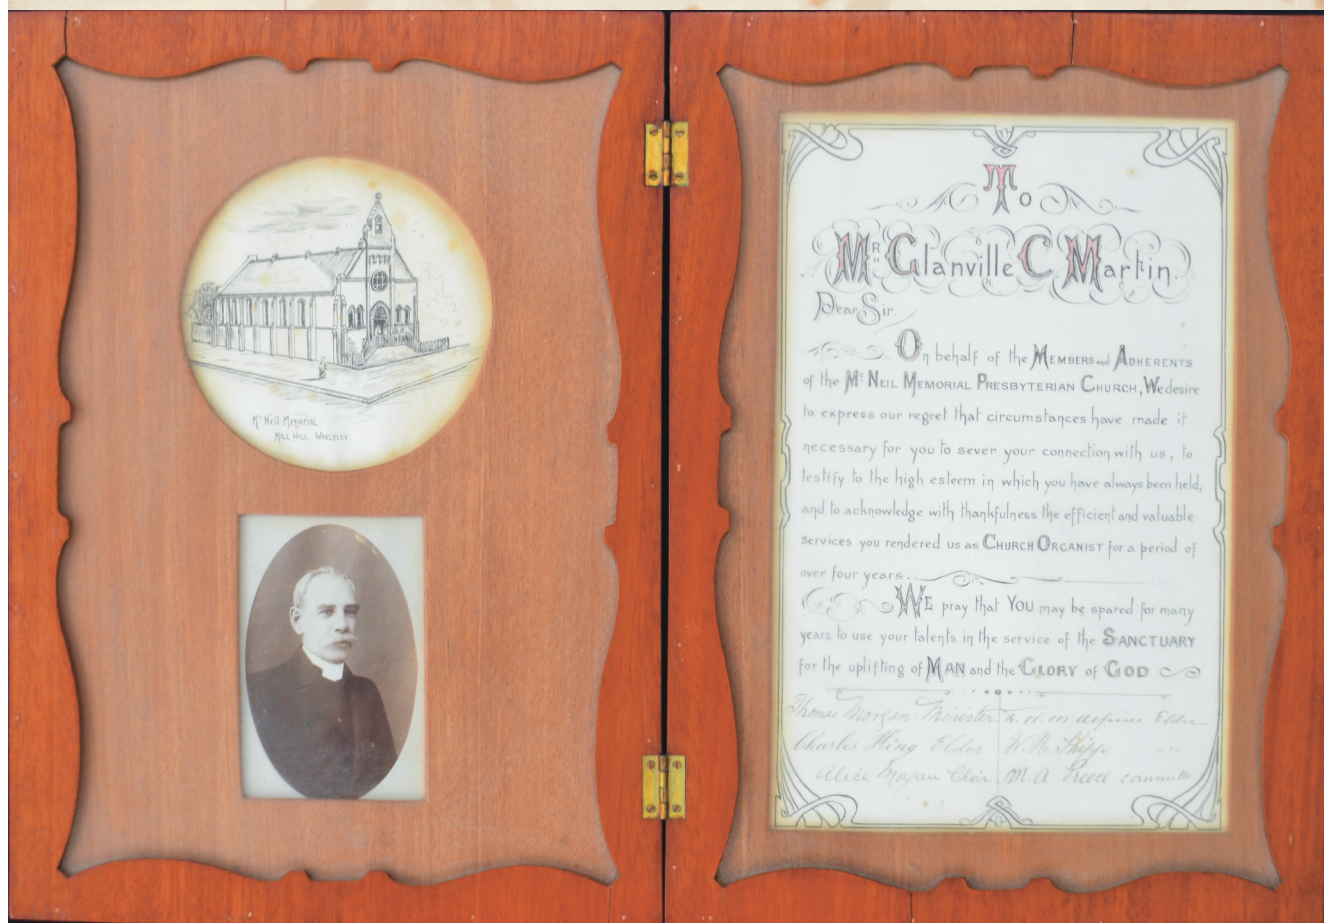 Mc Neil Memorial.
Mill Hill, Waverley.
To
Mr. Glanville C Martin
Dear Sir.
On behalf of the Members and Adherents
of the Mc Neil Memorial Presbyterian Church, We desire
to express our regret that circumstances have made it
necessary for you to sever your connection with us, to
testify to the high esteem in which you have always been held,
and to acknowledge with thankfulness the efficient and valuable
services you rendered us as Church Organist for a period of
over four years.
We pray that You may be spared for many
years to use your talents in the service of the Sanctuary
for the uplifting of Man and the Glory of God
Thomas Morgan Minister
Charles Hing Elder
Alice Morgan Choir
Elder
M. A. committ